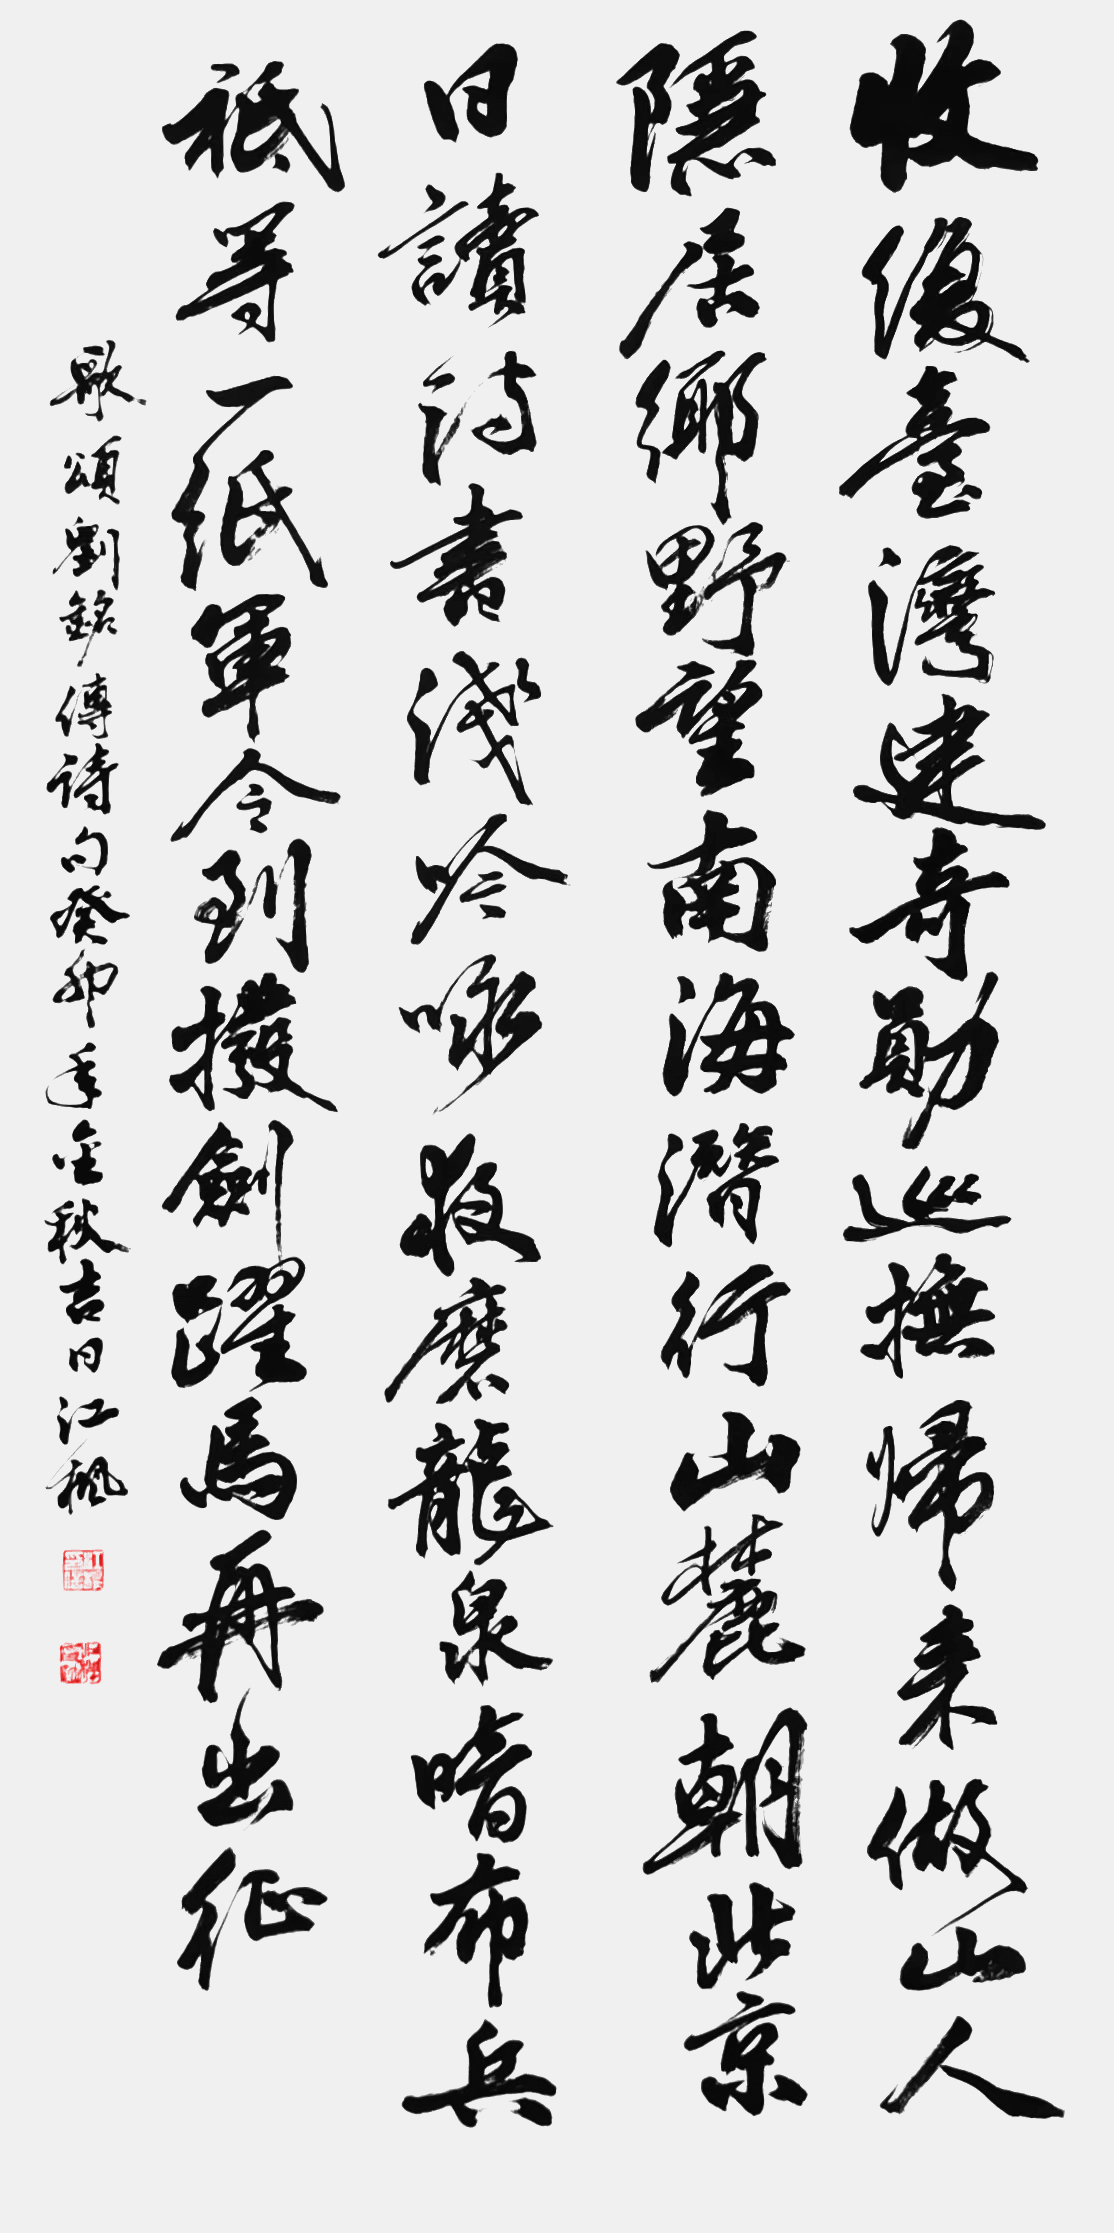 收復臺灣建奇勛巡撫歸来做山人
隱居鄉野望南海潛行山麓朝北京
日讀詩書浅吟咏夜磨龍泉暗布兵
祗等一紙軍令到撥劍躍馬再出征
歌頌劉銘傳詩句癸卯年金秋吉日江楓